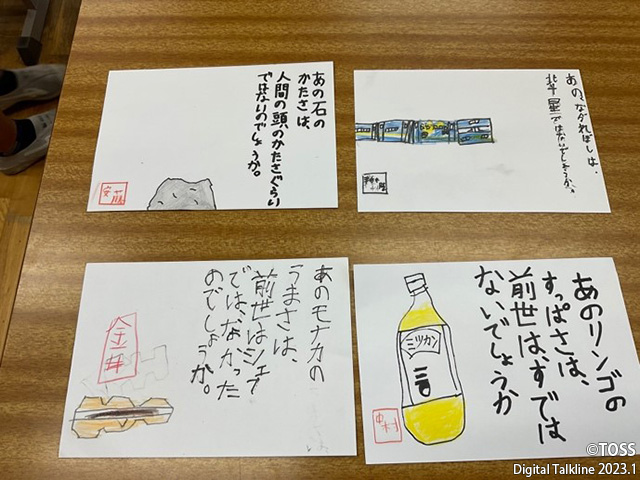 あの石の
かたさは、
人間の頭のかたさぐらい
ではないのでしょうか。
安藤
あの、ながれぼしは、
北斗星ではないでしょうか。
あのモナカの
うまさは、
前世はシェフ
では、なかった
のでしょうか。
金井
あのリンゴの
すっぱさは、
前世は、すでは
ないでしょうか
ミツカン
中村
©TOSS
Digital Talkline 2023.1